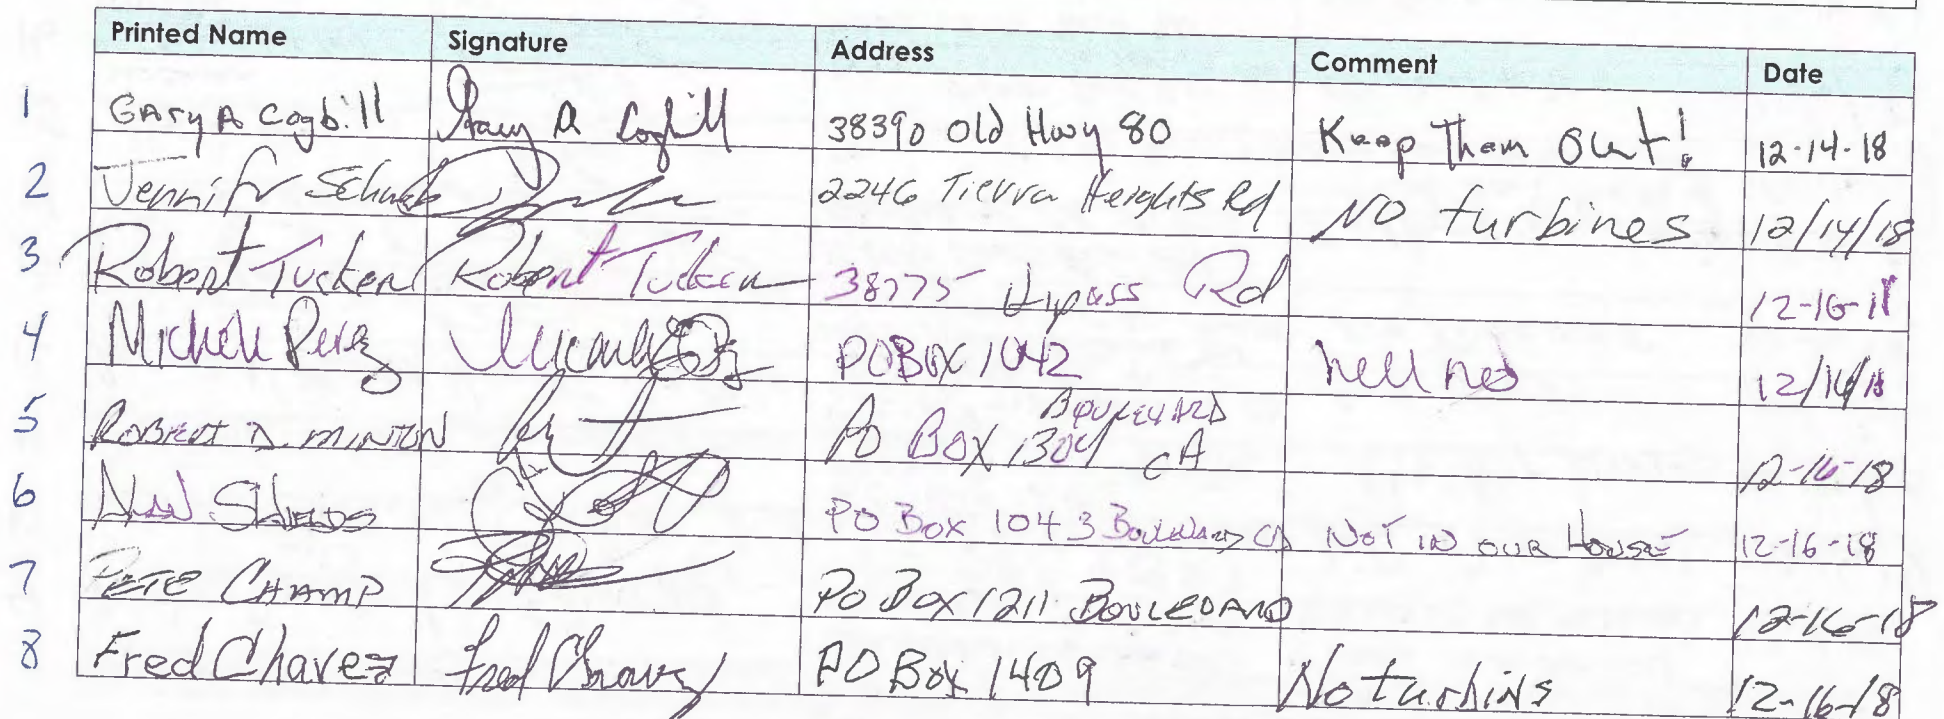 Printed Name Signature Address Comment Date
1 GAry A Cogbill Gary A Cogbill 38390 Old Hwy 80 Keep Them Out! 12-14-18
2 Jennifr 2246 Tierra Heights Rd NO turbines 12/14/18
3 Robert Tucker Robert Tucker 38775 Rd 12-16-18
4 Michele Perez PO BOX 1042 hell no 12/16/18
BOULEVARD
5 ROBERT D. MINTON PO BOX 1304 CA 12-16-18
6 SHIELDS PO Box 1043 Boulevard CA NOT IN OUR HOUSE 12-16-18
7 PETE CHAMP PO BOX 1211 BOULEVARD 12-16-18
8 Fred Chavez Fred Chavez PO Box 1409 No turbins 12-16-18